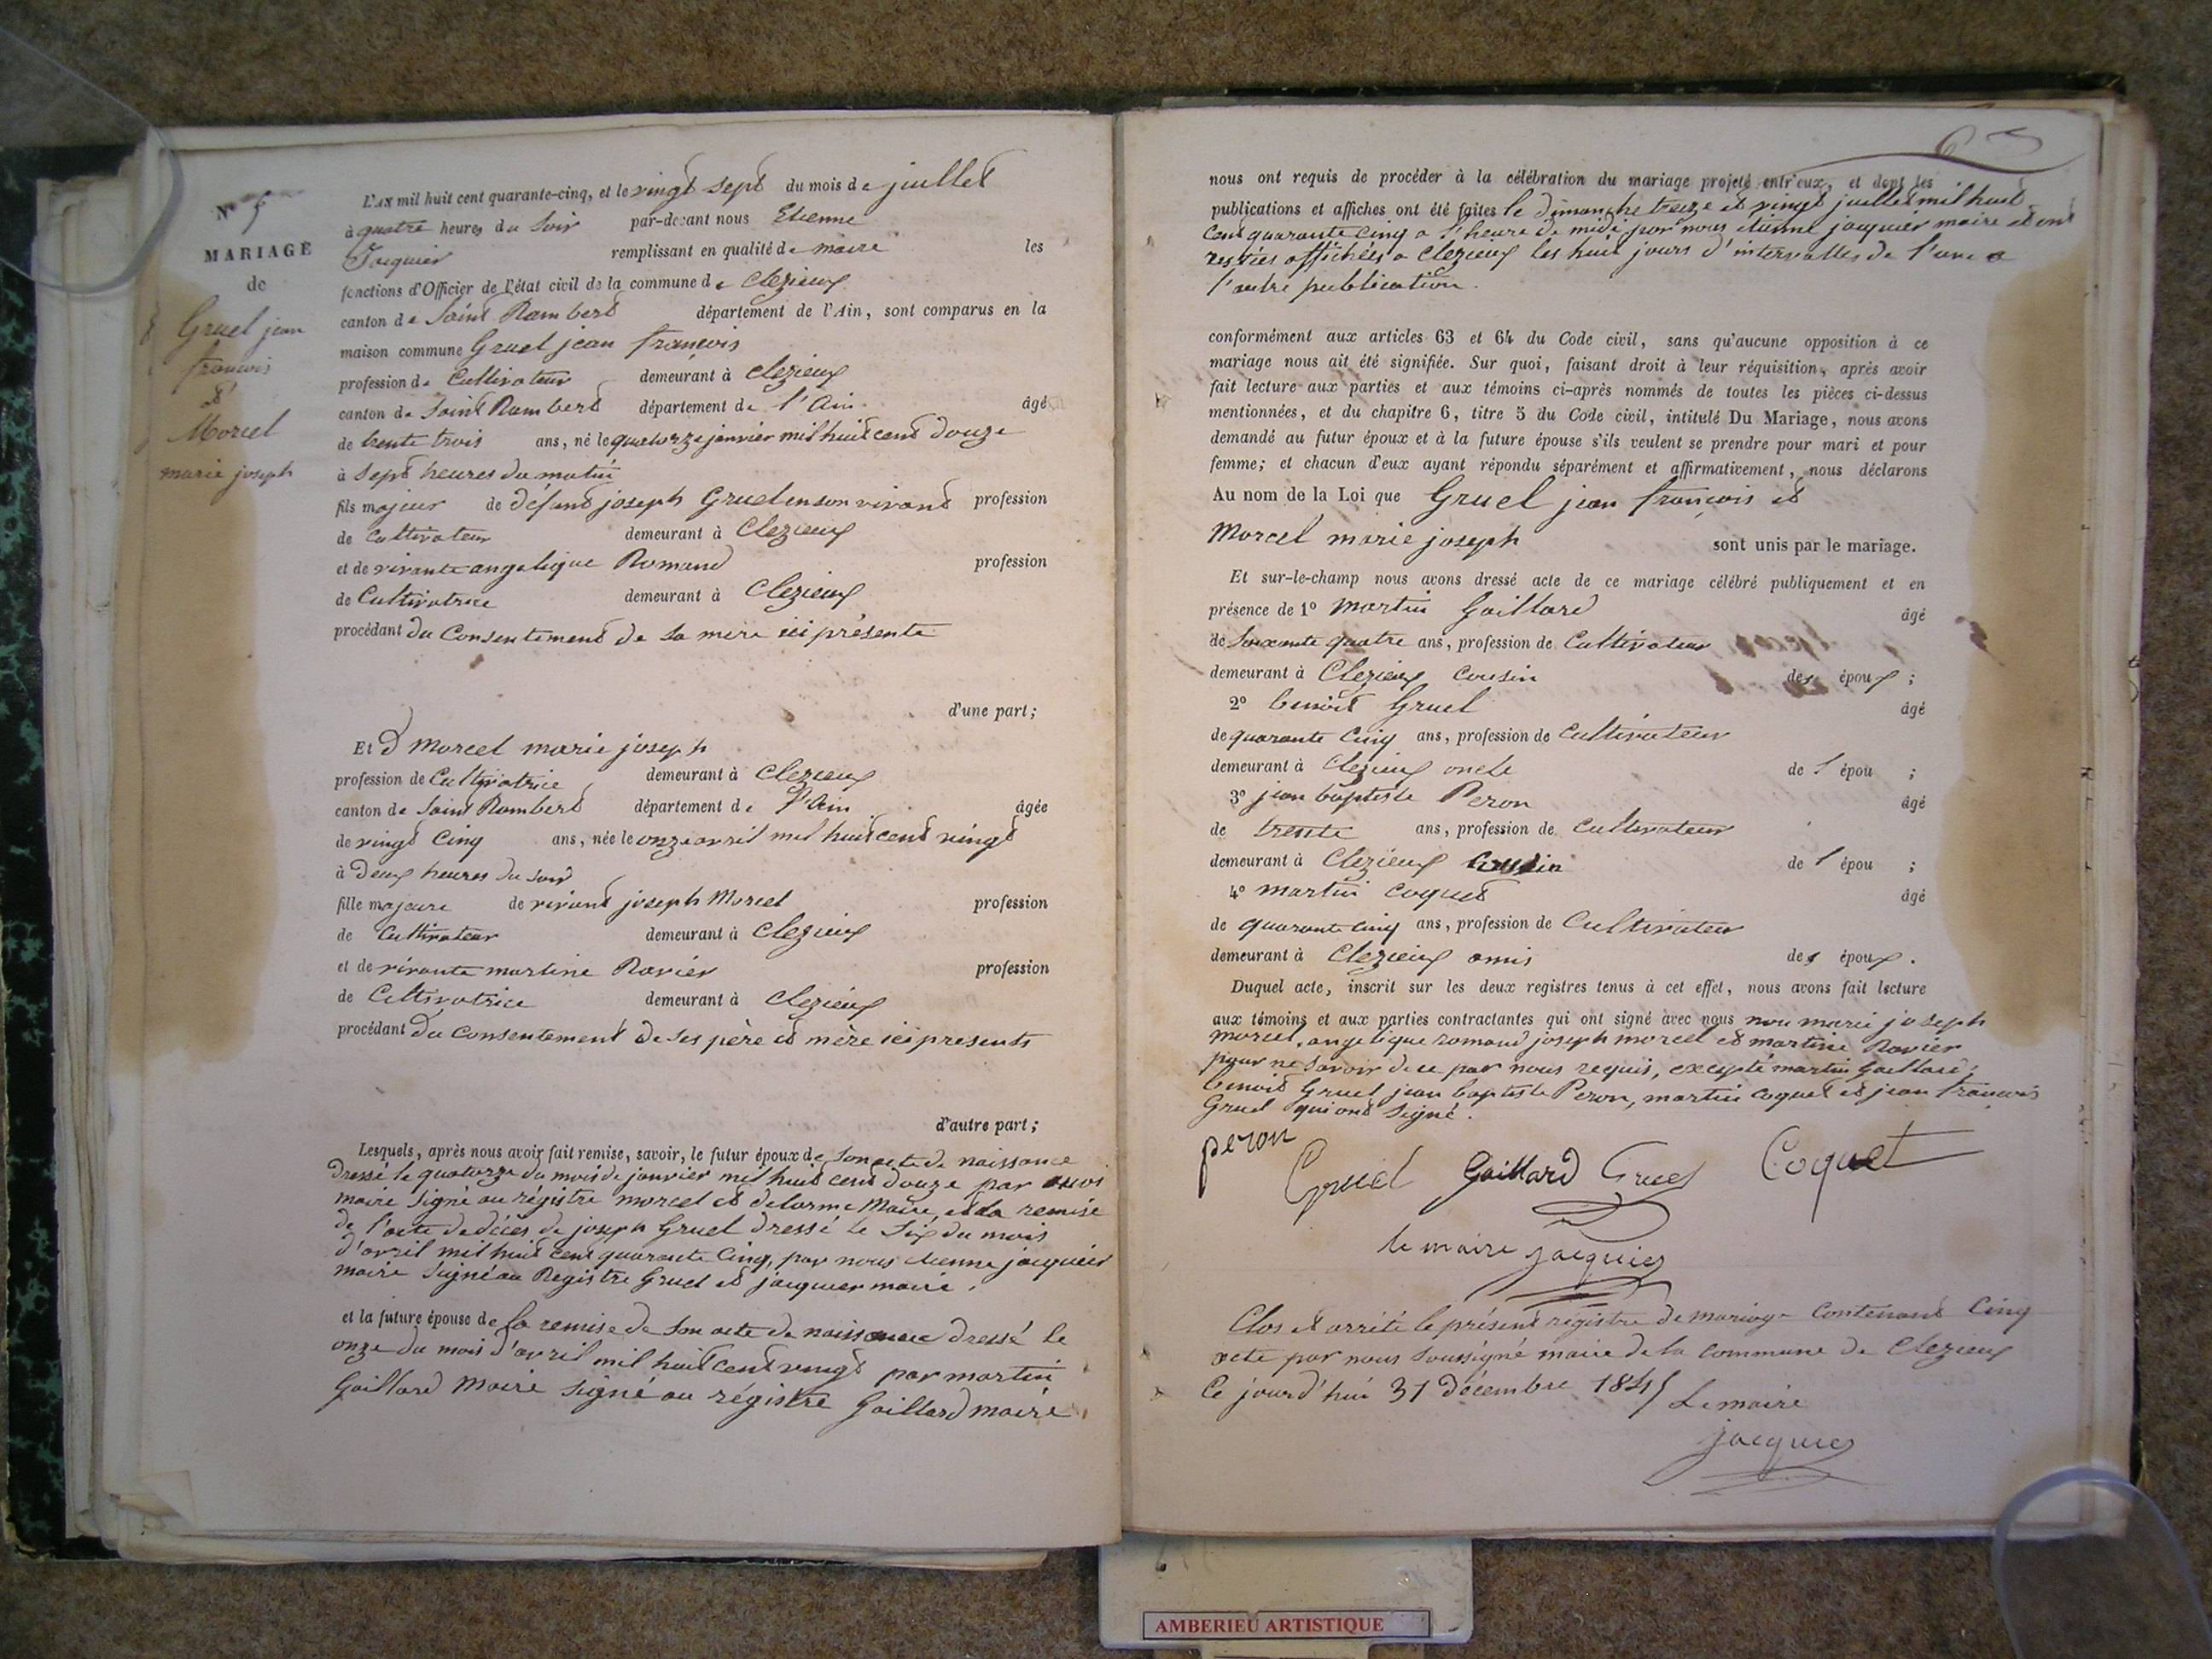 N° 5
MARIAGE
de
Gruel jean
francois
&
Morcel
marie joseph
L'AN mil huit cent quarante-cinq, et le vingt sept du mois de juillet
à quatre heures du Soir par-devant nous Etienne
Jacquier remplissant en qualité de maire les
fonctions d'Officier de l'état civil de la commune de Clezieux
canton de Saint Rambert département de l'Ain, sont comparus en la
maison commune Gruel jean francois
profession de Cultivateur demeurant à Clezieux
canton de Saint Rambert département de l'Ain âgé
de trente trois ans, né le quatorze janvier mil huit cent douze
à sept heures du matin
fils majeur de défunt joseph Gruel en son vivant profession
de Cultivateur demeurant à Clezieux
et de vivante angelique Romand profession
de Cultivatrice demeurant à Clezieux
procédant du Consentement de sa mere ici présente
d'une part;
Et D Morcel marie joseph
profession de Cultivatrice demeurant à Clezieux
canton de Saint Rambert département de l'Ain âgée
de vingt Cinq ans, née le onze avril mil huit cent vingt
à Deux heures du soir
fille majeure de vivant joseph Morcel profession
de Cultivateur demeurant à Clezieux
et de vivante martine Ravier profession
de Cultivatrice demeurant à Clezieux
procédant du consentement de ses père et mère ici presents
d'autre part;
Lesquels, après nous avoir fait remise, savoir, le futur époux de Son acte de naissance
Dressé le quatorze du mois de janvier mil huit cent douze par
maire Signé au régistre morcel et delorme Maire, et la remise
de l'acte de décès de joseph Gruel dressé le Six du mois
d'avril mil huit cent quarante Cinq, par nous etienne jacquier
maire Signé au Registre Gruel et jacquier maire.
et la future épouse de la remise de Son acte de naissance dressé le
onze du mois d'avril mil huit cent vingt par martin
Gaillard Maire Signé au régistre Gaillard maire
6
nous ont requis de procéder à la célébration du mariage projeté entr'eux, et dont les
publications et affiches ont été faites le Dimanche treize et vingt juillet mil huit
Cent quarante Cinq a l'heure de midi, par nous etienne jacquier maire et ont
restées affichées a Clezieux les huit jours d'intervalles de l'une a
l'autre publication.
conformément aux articles 63 et 64 du Code civil, sans qu'aucune opposition à ce
mariage nous ait été signifiée. Sur quoi, faisant droit à leur réquisition, après avoir
fait lecture aux parties et aux témoins ci-après nommés de toutes les pièces ci-dessus
mentionnées, et du chapitre 6, titre 5 du Code civil, intitulé Du Mariage, nous avons
demandé au futur époux et à la future épouse s'ils veulent se prendre pour mari et pour
femme; et chacun d'eux ayant répondu séparément et affirmativement, nous déclarons
Au nom de la Loi que Gruel jean françois et
Morcel marie joseph sont unis par le mariage.
Et sur-le-champ nous avons dressé acte de ce mariage célébré publiquement et en
présence de 1° Martin Gaillard âgé
de Soixante quatre ans, profession de Cultivateur
demeurant à Clezieux Cousin des époux ;
2° benoit Gruel âgé
de quarante Cinq ans, profession de Cultivateur
demeurant à Clezieux oncle de l épou ;
3° jean baptiste Peron âgé
de trente ans, profession de Cultivateur
demeurant à Clezieux Cousin de l épou ;
4° martin coquet âgé
de quarante cinq ans, profession de Cultivateur
demeurant à Clezieux amis des époux.
Duquel acte, inscrit sur les deux registres tenus à cet effet, nous avons fait lecture
aux témoins et aux parties contractantes qui ont signé avec nous non marie joseph
morcel, angelique romand joseph morcel et martine Ravier
pour ne Savoir de ce par nous requis, excepté martin Gaillard,
benoit Gruel jean baptiste Peron, martin coquet et jean francois
Gruel qui ont Signé.
peron Gruel Gaillard Gruel Coquet
le maire jacquier
Clos et arrété le présent régistre de mariage Contenant Cinq
acte par nous Soussigné maire de la commune de Clezieux
Ce jourd'hui 31 Décembre 1845 Le maire
jacquier
AMBERIEU ARTISTIQUE